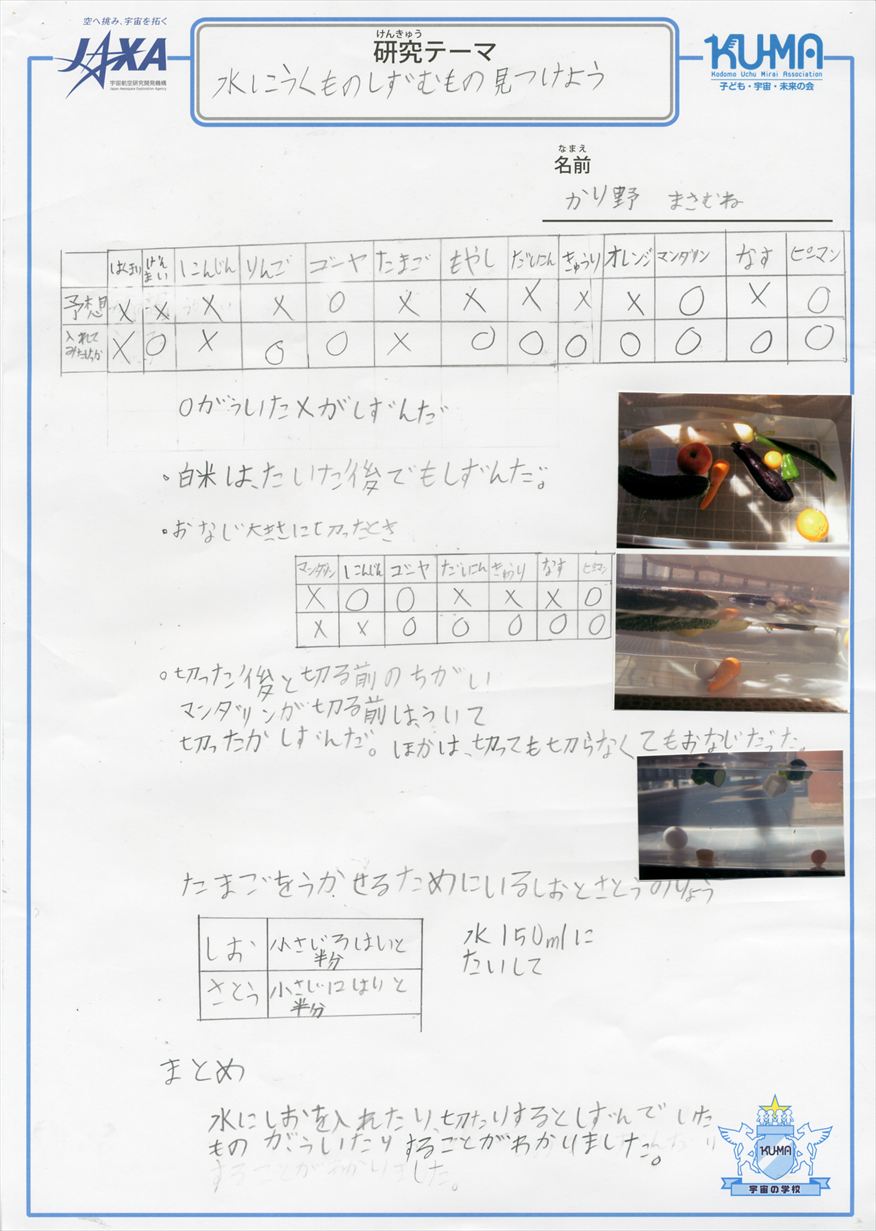 空へ挑み、宇宙を拓く
JAXA
宇宙航空研究開発機構
Japan Aerospace Exploration Agency
けんきゅう
研究テーマ
水にうくものしずむもの見つけよう
KU-MA
Kodomo Uchu Mirai Association
子ども・宇宙・未来の会
なまえ
名前
かり野 まさむね
はくまい げんまい にんじん りんご ゴーヤ たまご もやし だいこん きゅうり オレンジ マンダリン なす ピーマン
予想 X X X X O X X X X X O X O
入れてみたけっか X O X O O X O O O O O O O
Oがういた Xがしずんだ
・白米は、たいた後でもしずんだ。
・おなじ大きさに切ったとき
マンダリン にんじん ゴーヤ だいこん きゅうり なす ピーマン
X O O X X X O
X X O O O O O
・切った後と切る前のちがい
マンダリンが切る前は、ういて
切ったかしずんだ。ほかは、切っても切らなくてもおなじだった。
たまごをうかせるためにいるしおとさとうのりょう
しお 小さじ3ばいと半分
水150mlに
たいして
さとう 小さじ
半分
まとめ
水にしおを入れたり、切たりするとしずんでいた
ものがういたりすることがわかりました。
することがわかりました。
KU-MA
宇宙の学校